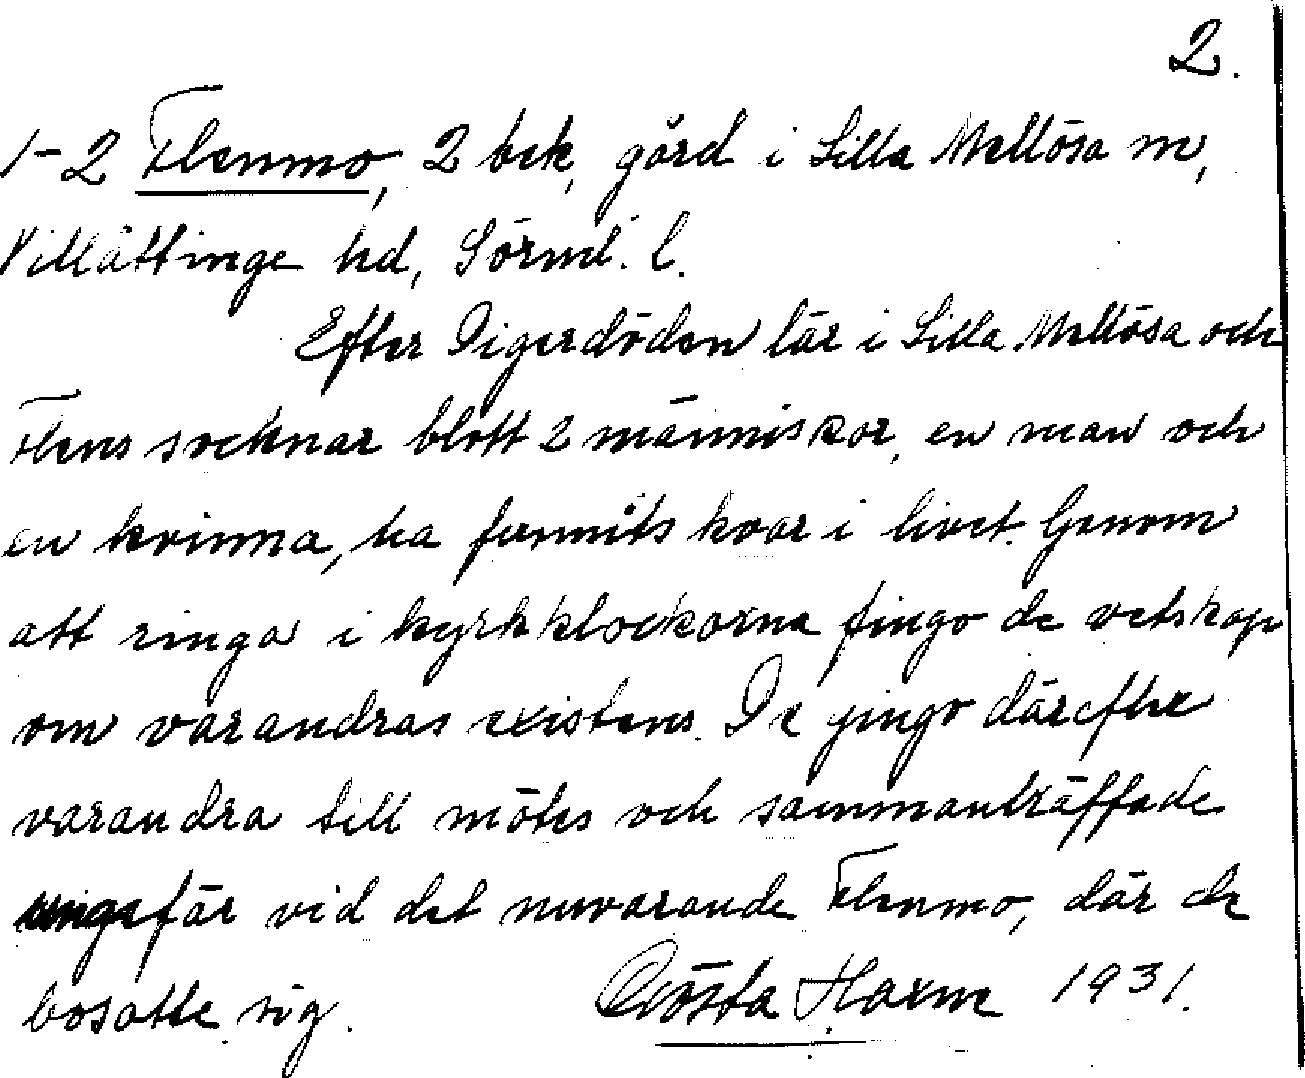 2.
1-2 Flenmo, 2 bek, gård i Lilla Mellösa sn,
Villåttinge hd, Sörml. l.
Efter Digerdöden lär i Lilla Mellösa och
Flens socknar blott 2 människor, en man och
en kvinna, ha funnits kvar i livet. Genom
att ringa i kyrkklockorna fingo de vetskap
om varandras existens. De gingo därefter
varandra till mötes och sammanträffade
ungefär vid det nuvarande Flenmo, där de
bosatte sig. Gösta Harm 1931.